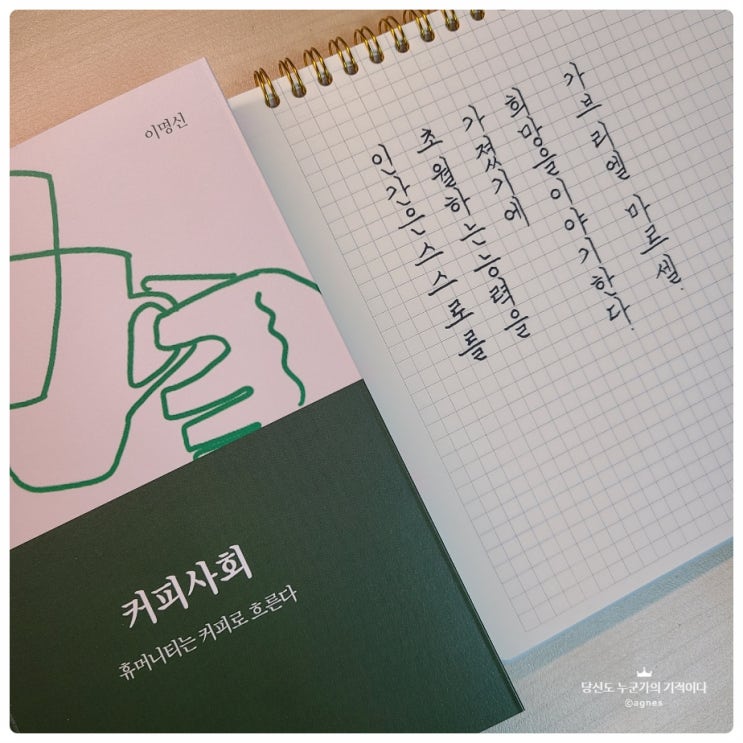 이명신
커피사회
휴머니티는 커피로 흐른다
인간은 스스로를
초월하는 능력을
가졌기에
희망을 이야기한다.
가브리엘 마르셀.
당신도 누군가의 기적이다
©agnes